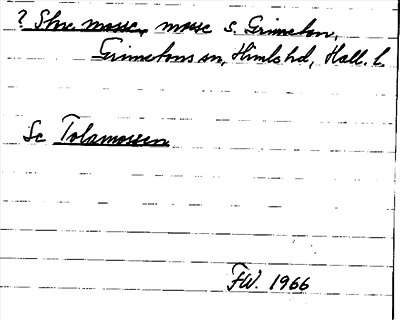 ? Stne mosse, mosse S. Grimeton,
Grimetons sn, Himle hd, Hall. l.
Se Tolamossen
FW. 1966